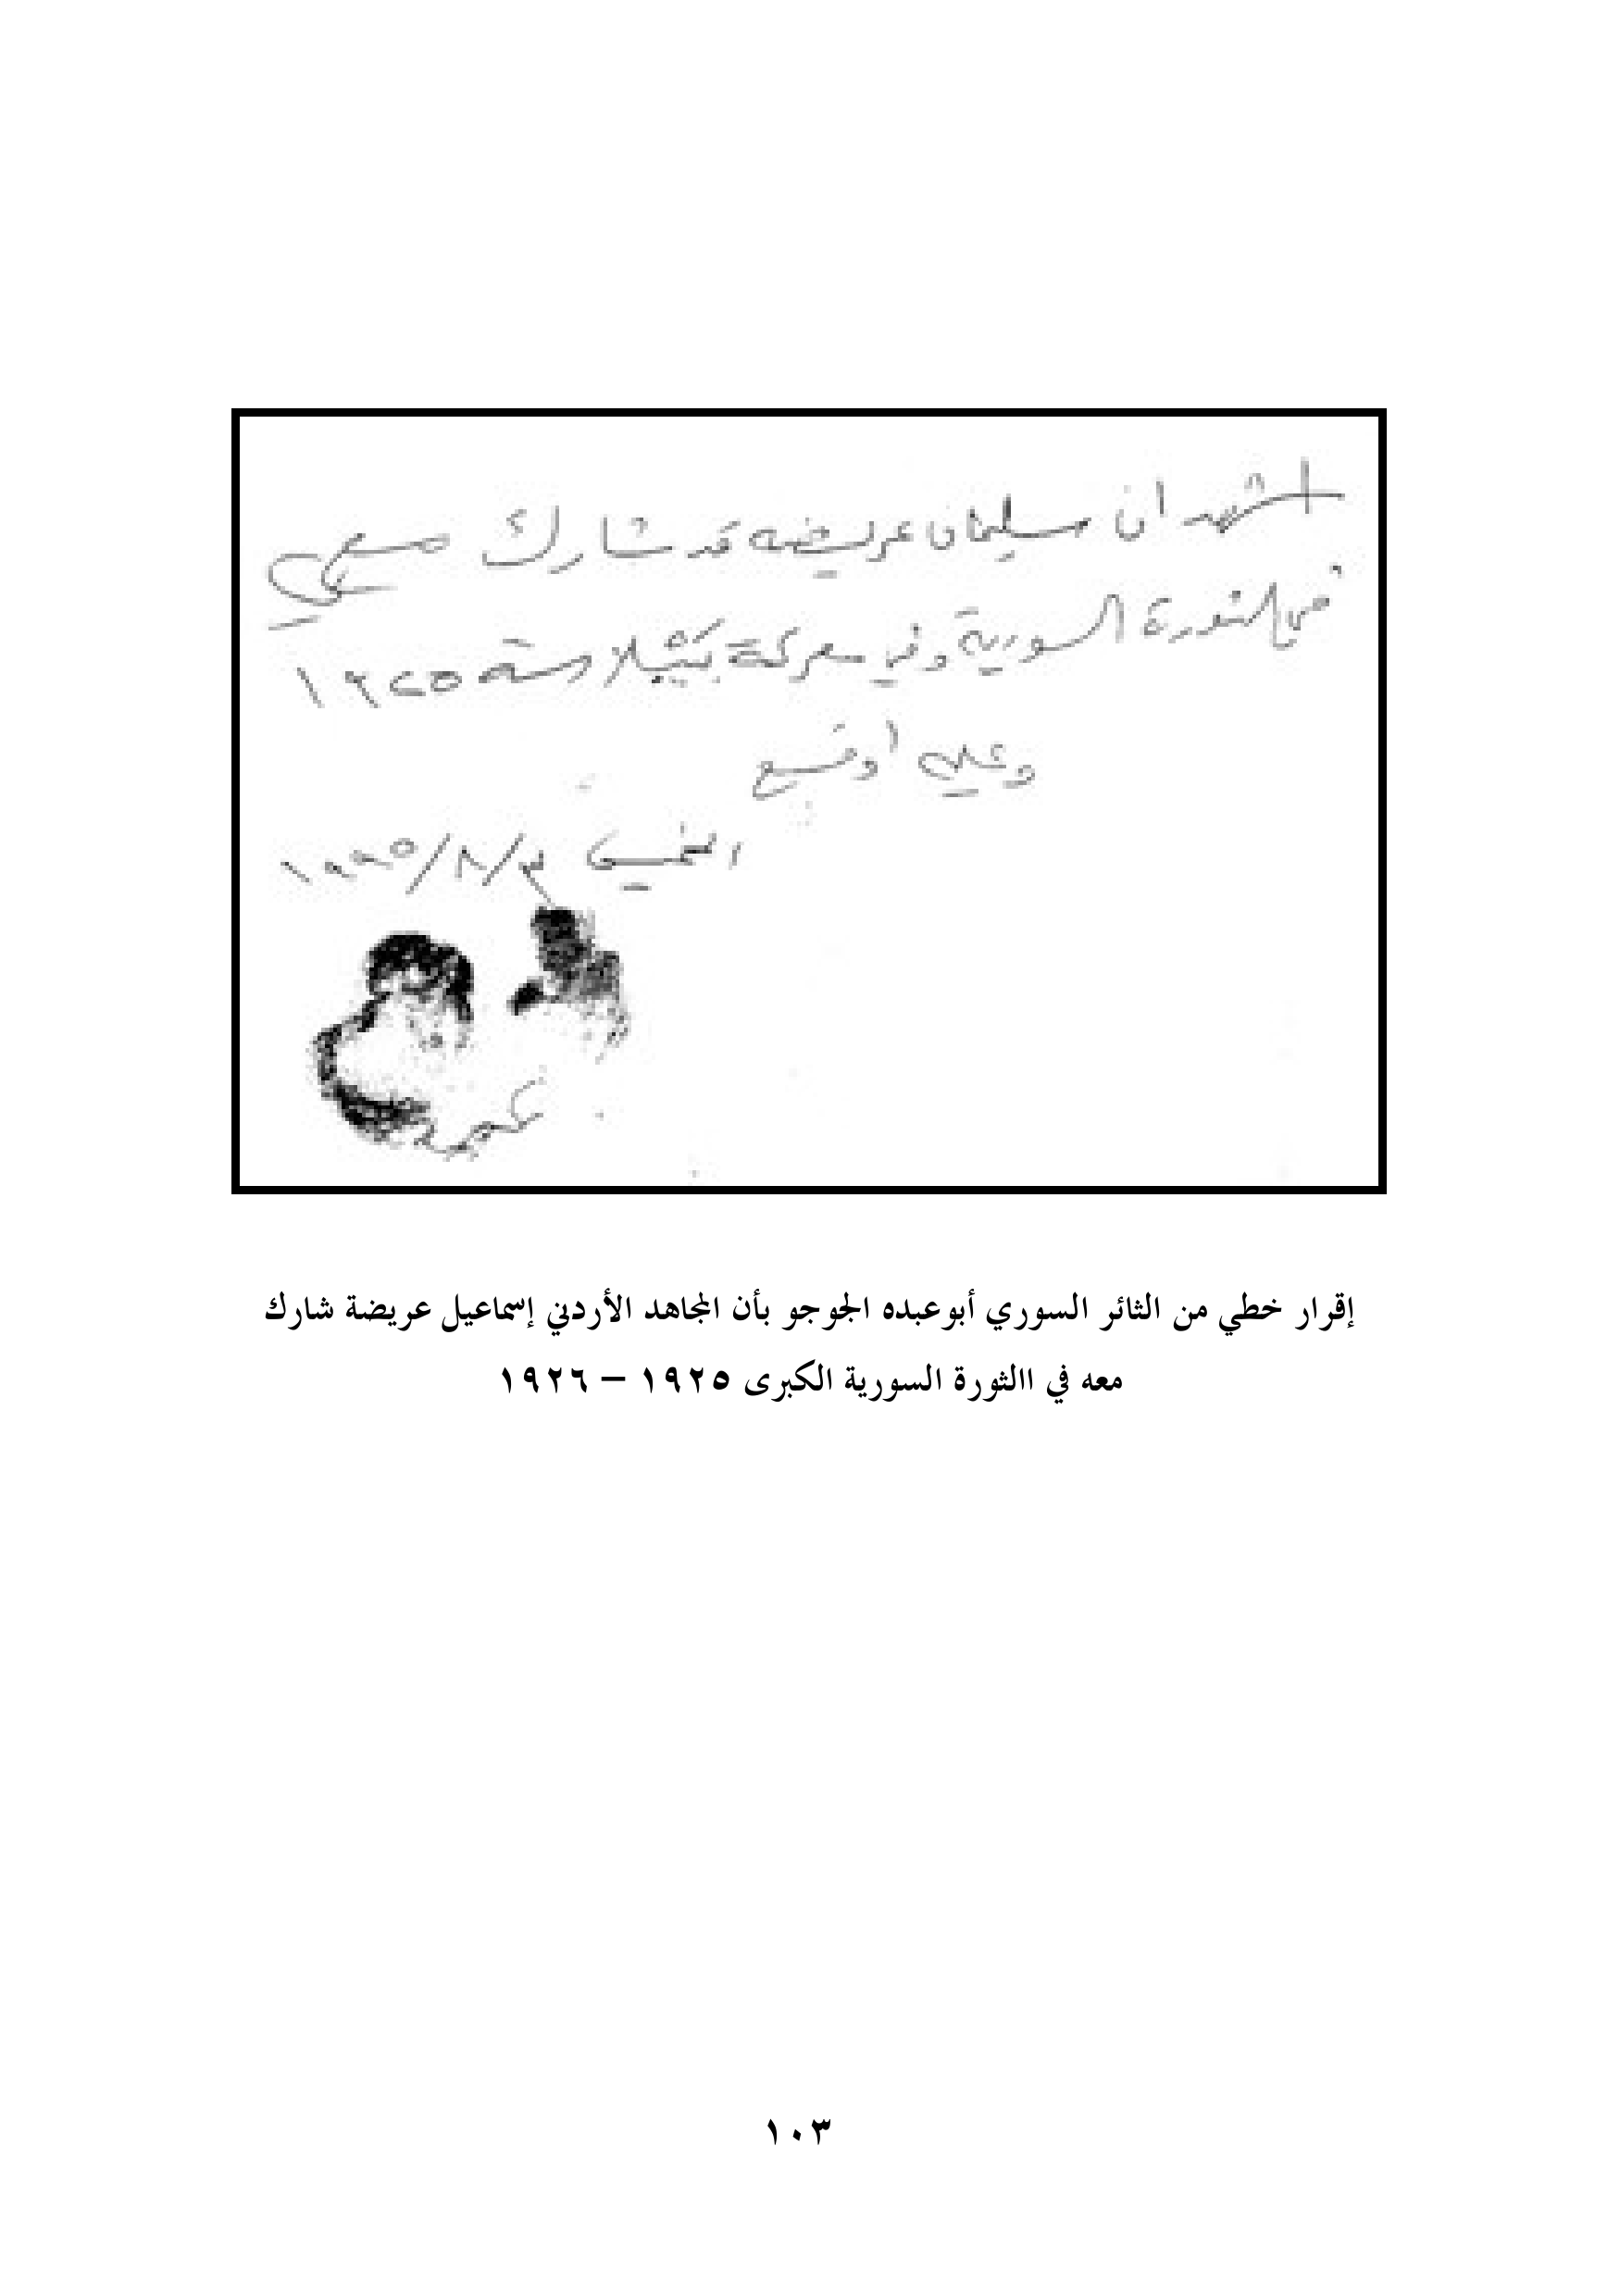 اشهد ان سليمان عريضه قد شارك معي
في الثورة السورية وفي معركة سنة ١٩٢٥
وعليه اوقع
الخميس ٣/٨/١٩٩٥
إقرار خطي من الثائر السوري أبوعبده الجوجو بأن المجاهد الأردني إسماعيل عريضة شارك
معه في االثورة السورية الكبرى ١٩٢٥ – ١٩٢٦
١٠٣